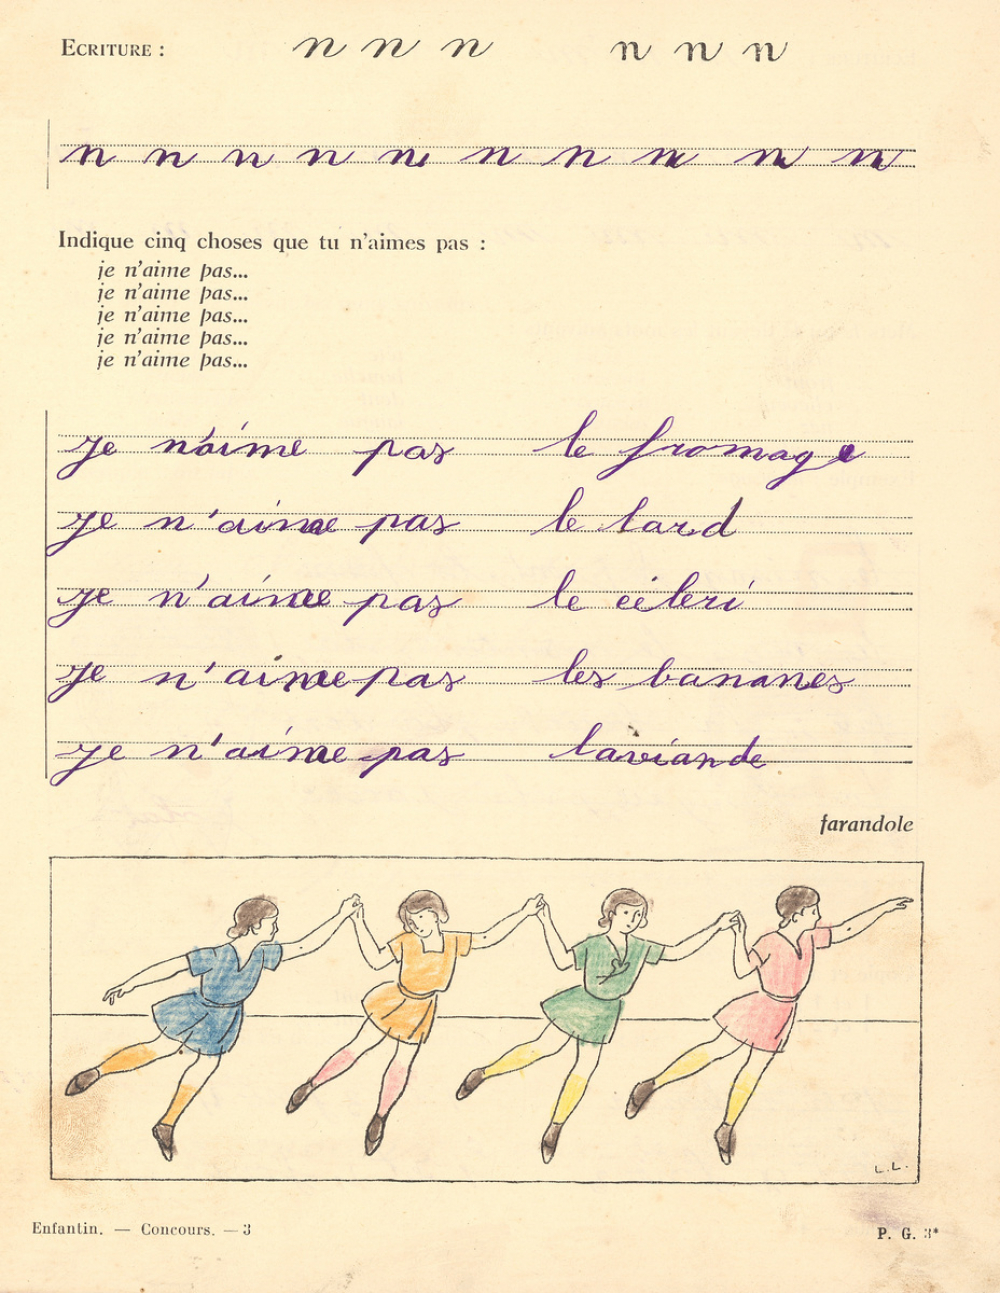 ECRITURE : n n n n n n
n n n n n n n n n n
Indique cinq choses que tu n'aimes pas :
je n'aime pas...
je n'aime pas...
je n'aime pas...
je n'aime pas...
je n'aime pas...
je n'aime pas le fromage
je n'aime pas le lard
je n'aime pas le céleri
je n'aime pas les bananes
je n'aime pas laviande
farandole
L.L.
Enfantin. — Concours. — 3
P. G. 3*